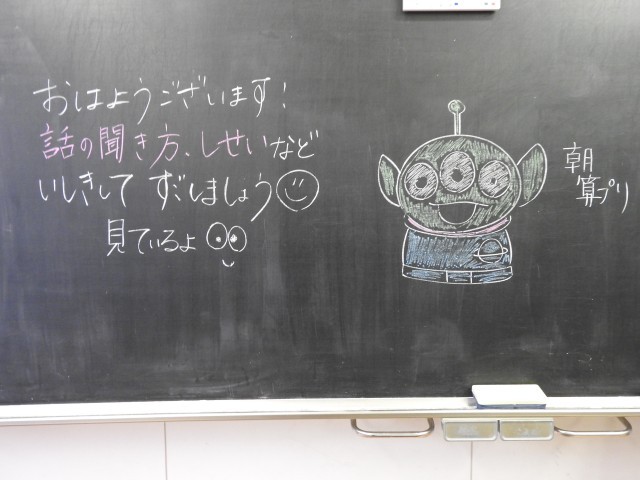 おはようございます!
話の聞き方、しせいなど
いしきして すごしましょう
見ているよ
朝
算プリ